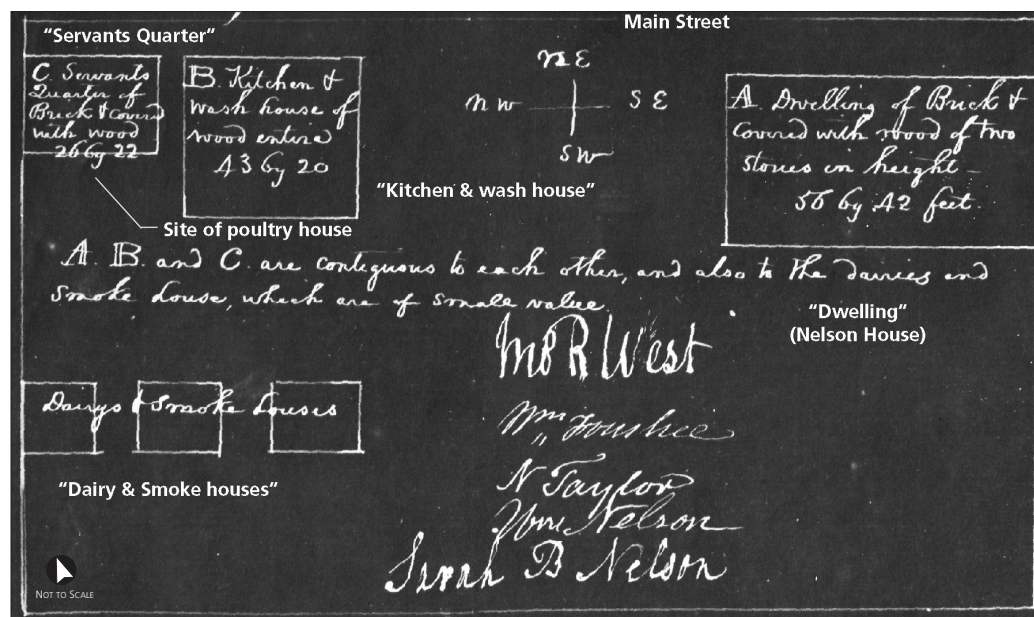 Main Street
“Servants Quarter”
C. Servants
Quarter of
Brick & Covered
with wood
26 by 22
B. Kitchen &
wash house of
wood entire
43 by 20
N E
N W
S E
S W
A. Dwelling of Brick &
Covered with wood of two
stories in height –
56 by 42 feet.
“Kitchen & wash house”
Site of poultry house
A. B. and C. are contiguous to each other, and also to the dairies and
smoke house, which are of small value.
“Dwelling”
(Nelson House)
West
Dairys & Smoke houses
Wm Foushee
“Dairy & Smoke houses”
N Taylor
Wm Nelson
Sarah B Nelson
NOT TO SCALE